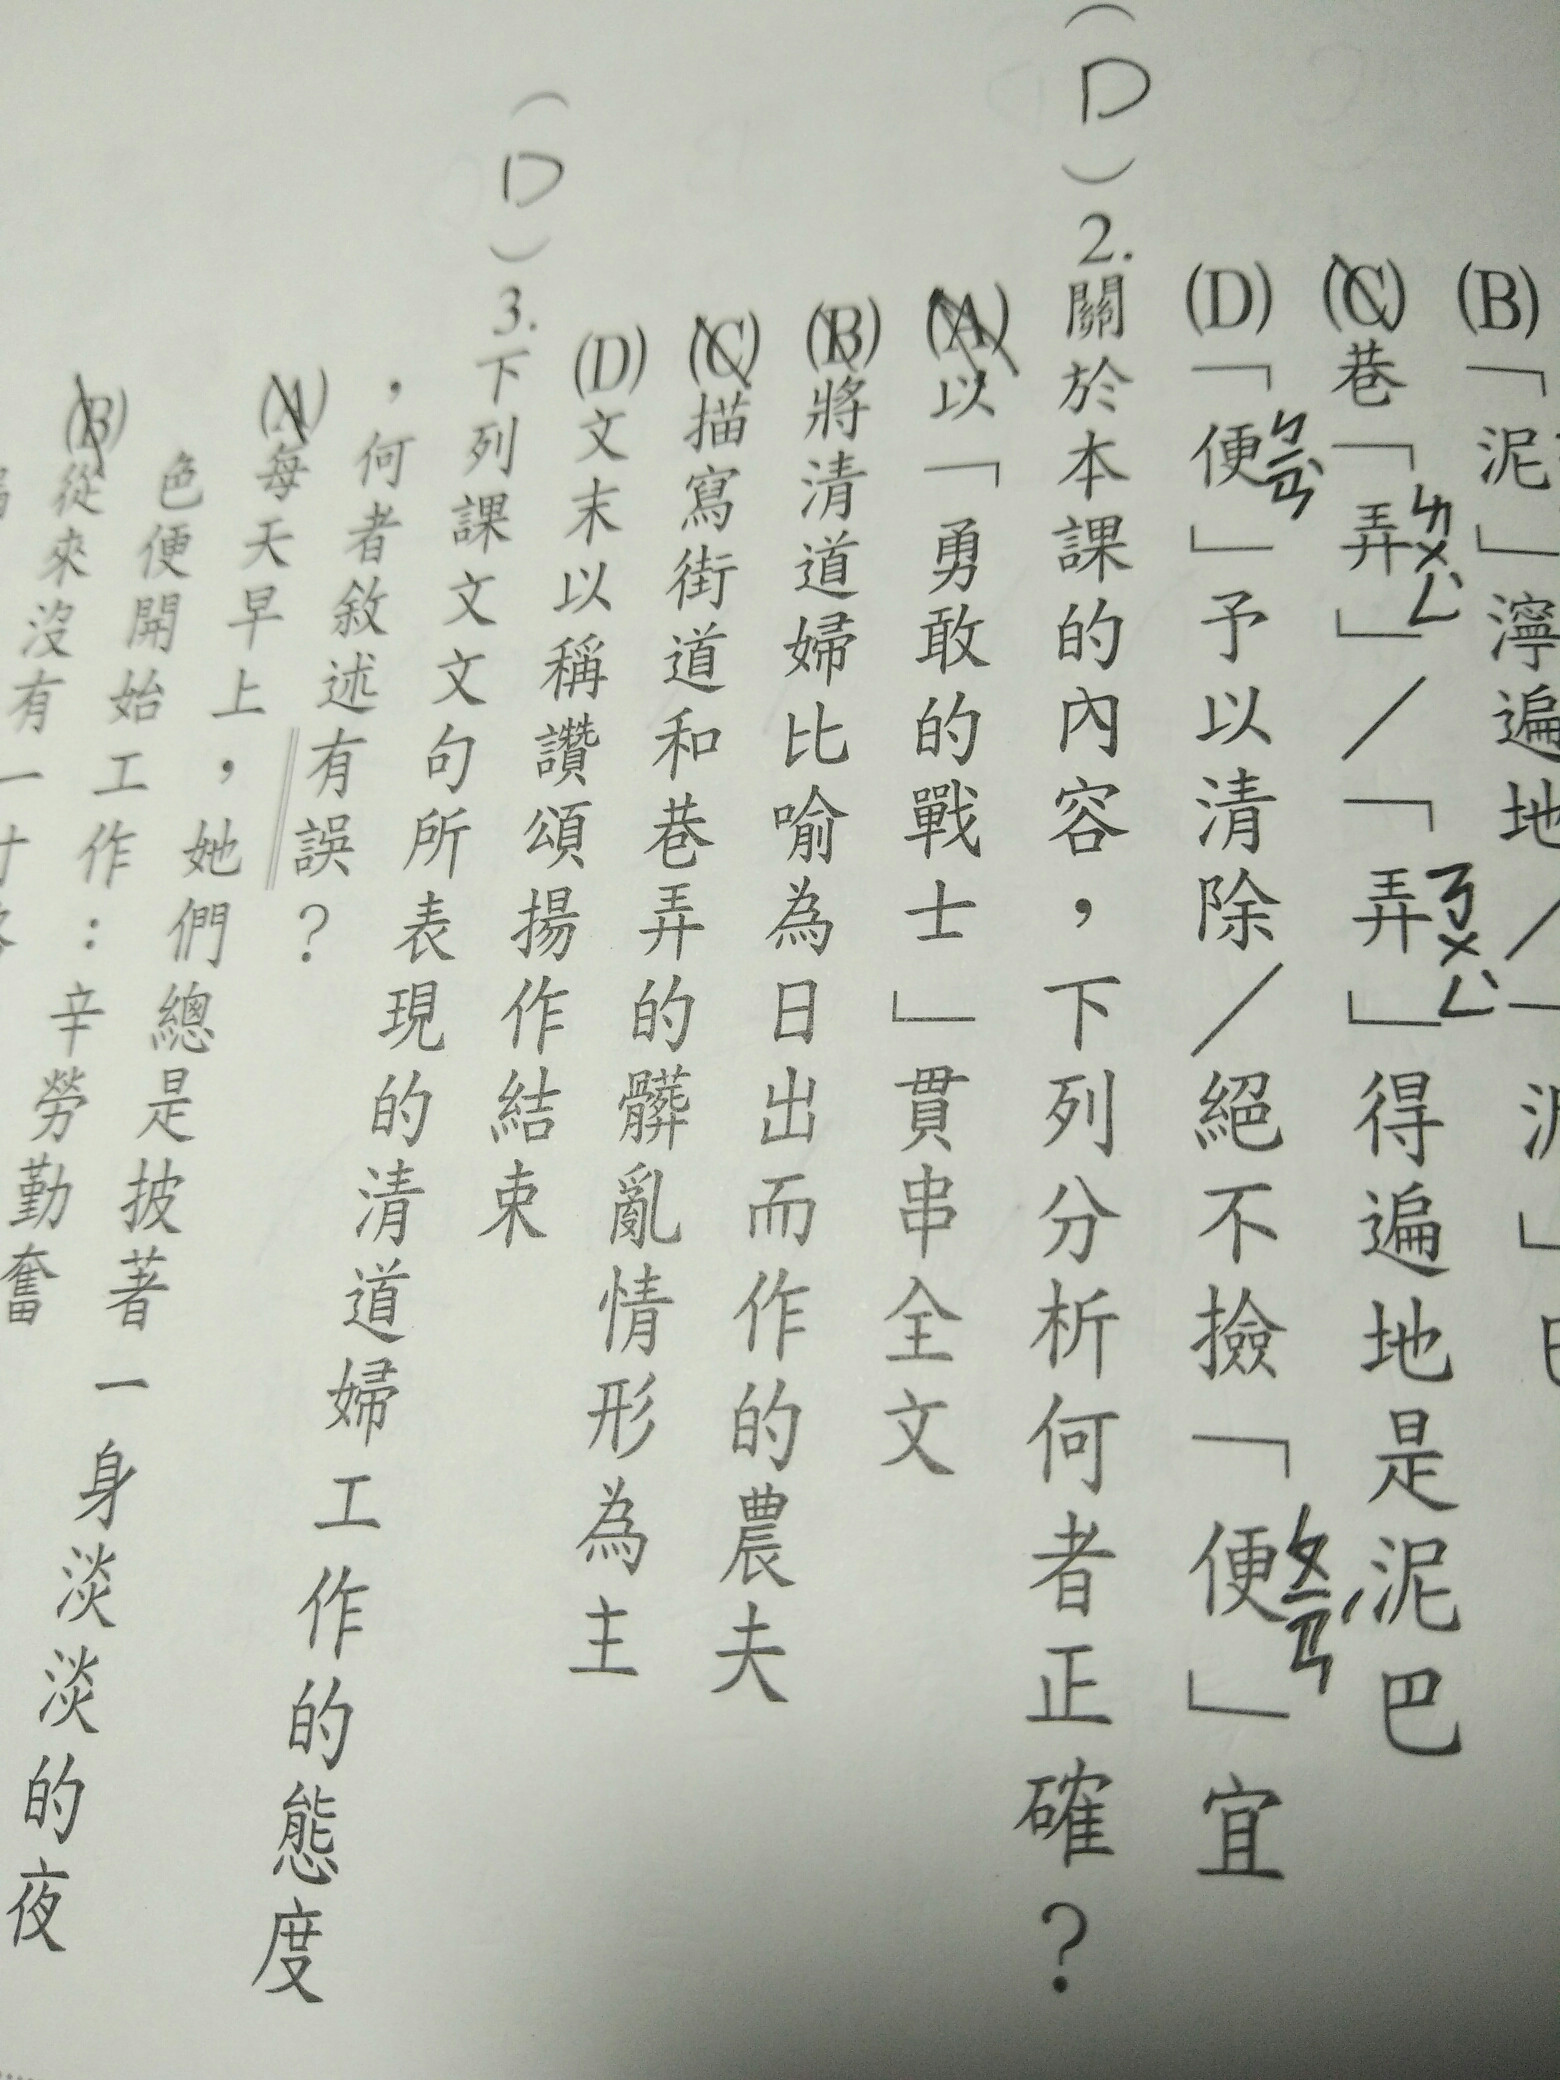 (B)「泥」濘遍地/「泥」巴
(C)巷「弄」ㄌㄨㄥˋ/「弄」ㄋㄨㄥˋ得遍地是泥巴
(D)「便」ㄅㄧㄢˋ予以清除/絕不撿「便」ㄆㄧㄢˊ宜
(D)2.關於本課的內容,下列分析何者正確?
(A)以「勇敢的戰士」貫串全文
(B)將清道婦比喻為日出而作的農夫
(C)描寫街道和巷弄的髒亂情形為主
(D)文末以稱讚頌揚作結束
(D)3.下列課文文句所表現的清道婦工作的態度
,何者敘述有誤?
(A)每天早上,她們總是披著一身淡淡的夜
色便開始工作:辛勞勤奮
(B)從來沒有一